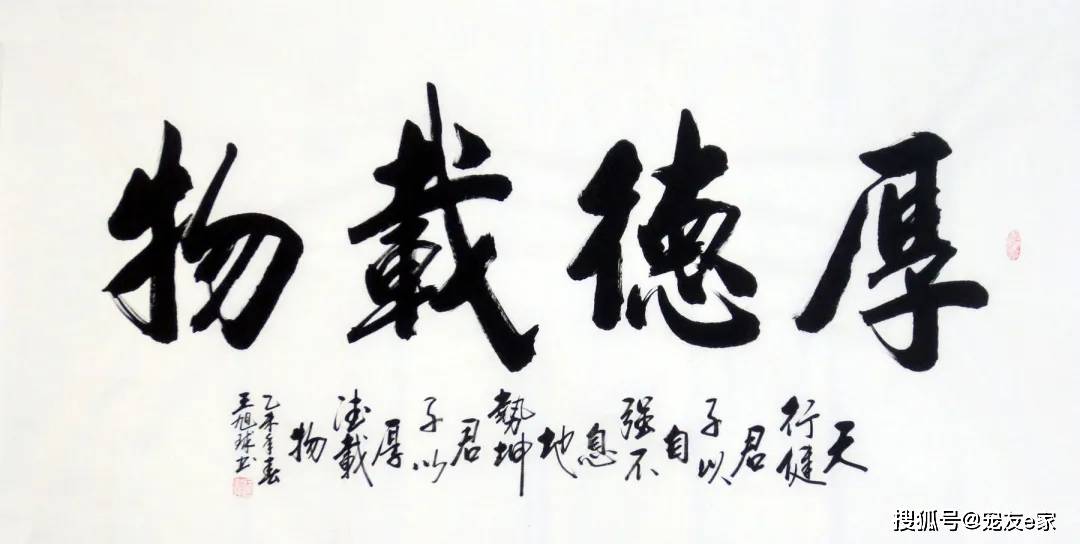 厚德載物
天行健君子以自强不息地勢坤君子以厚德載物
乙未年春
王旭球书
搜狐号@宠友e家